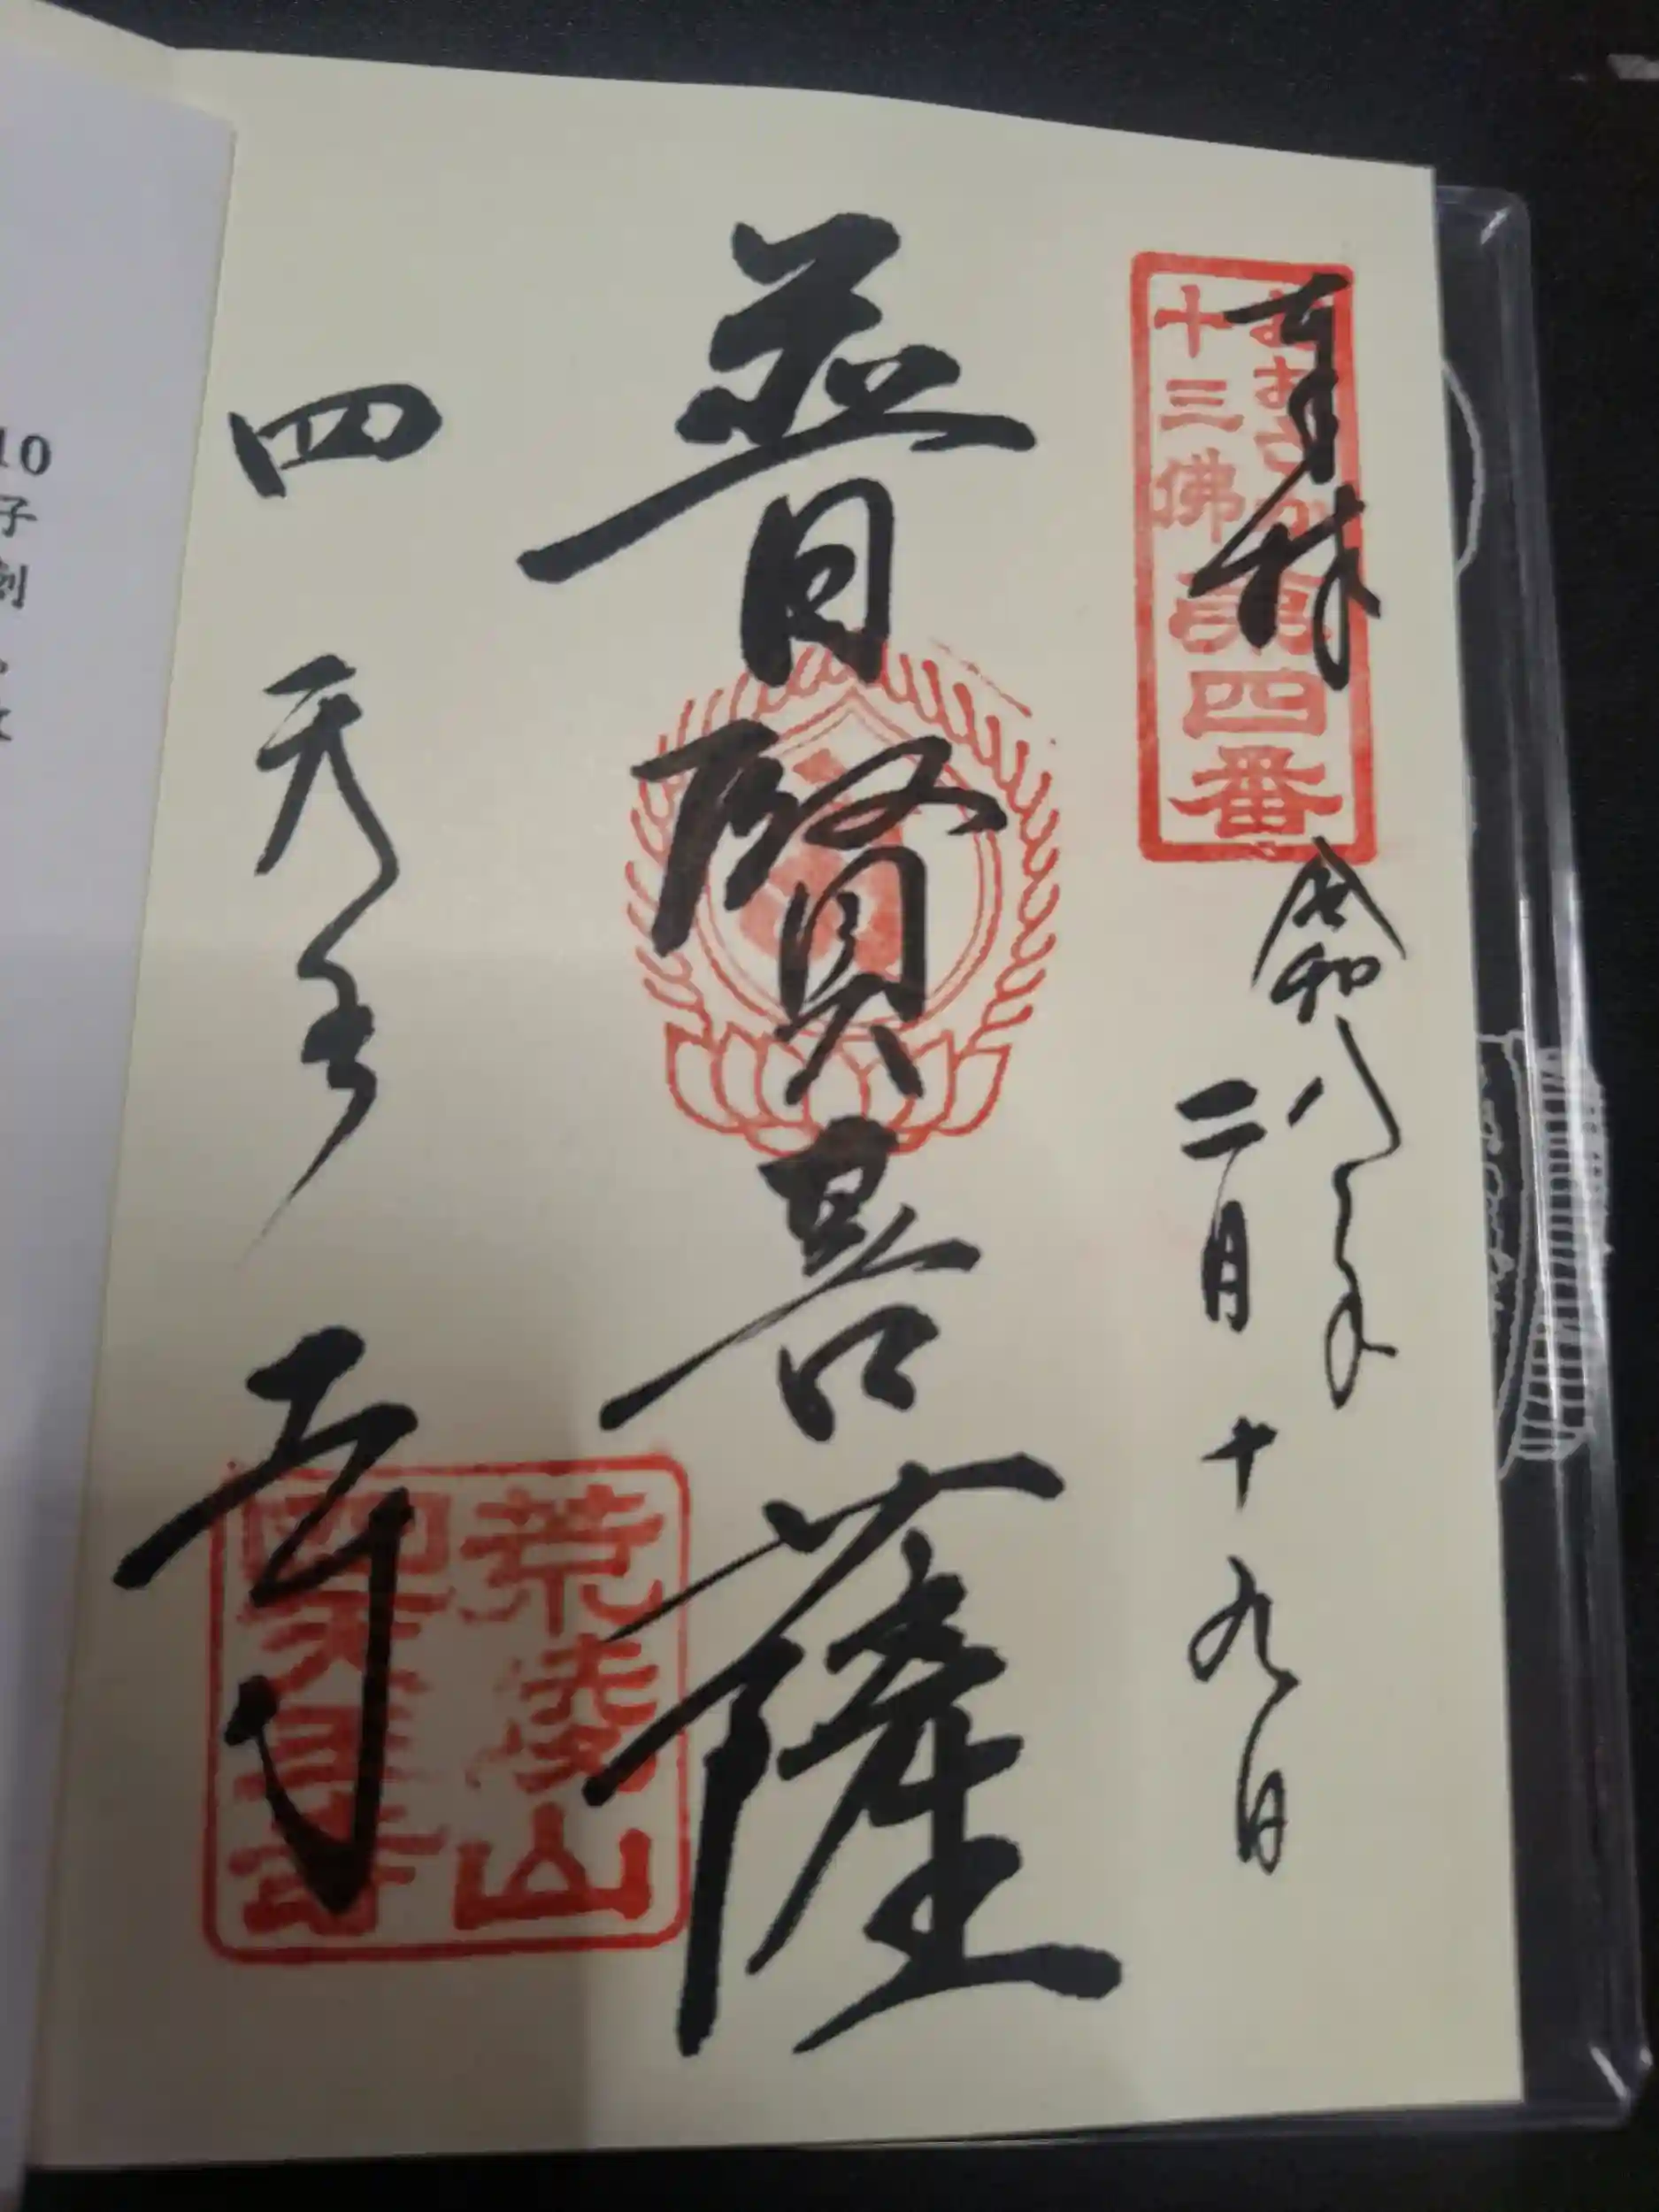 奉拝
おおさか
十三佛
第四番
令和八年
二月十九日
普賢菩薩
四天王寺
荒陵山
四天王寺
10
子
剣